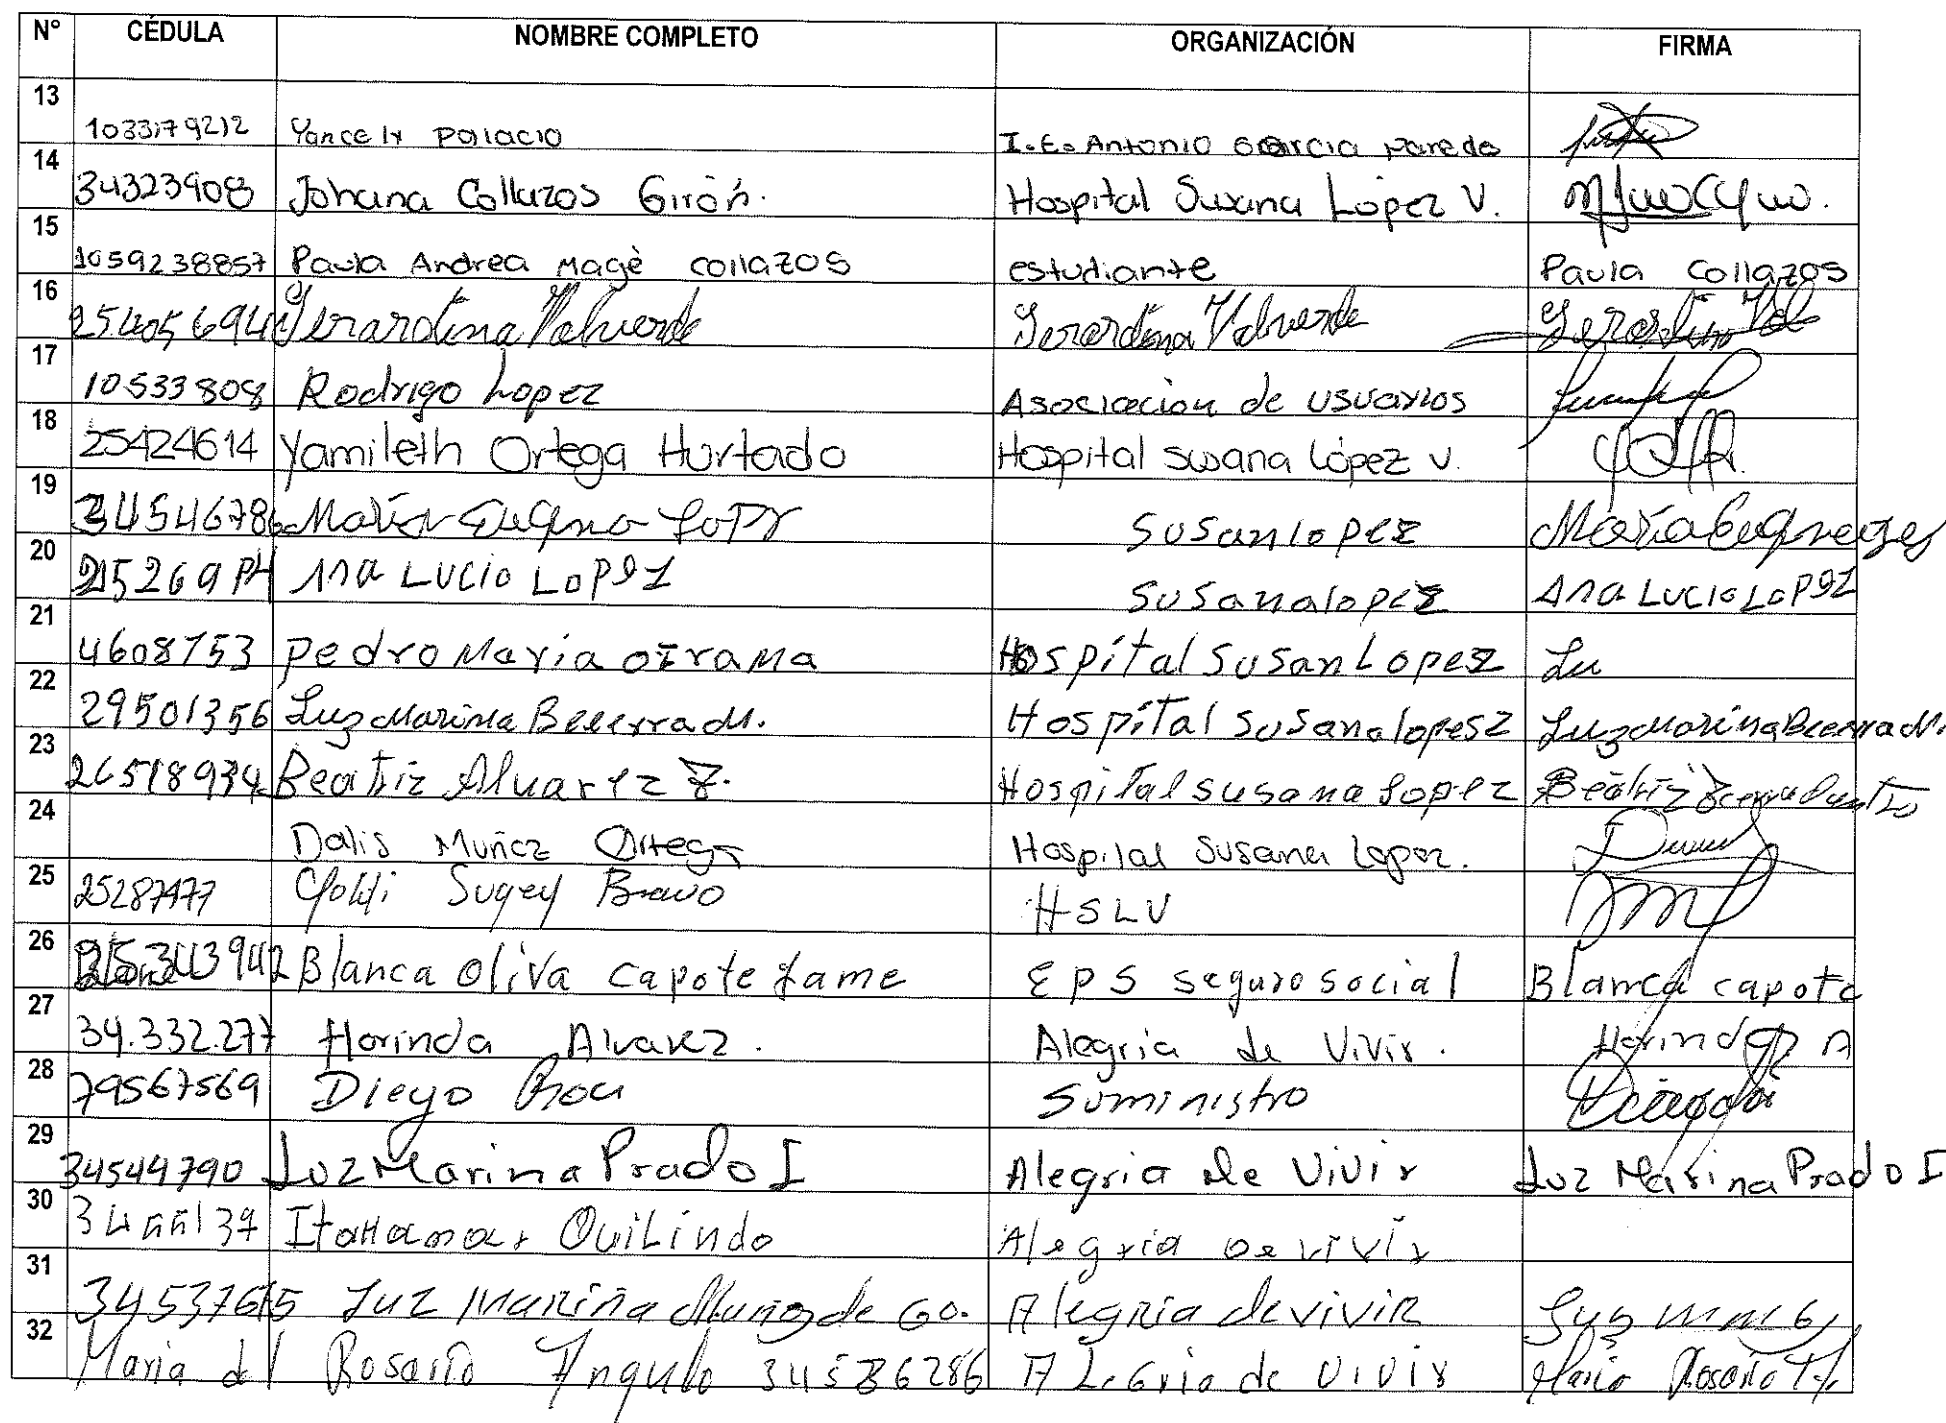 N° CÉDULA NOMBRE COMPLETO ORGANIZACIÓN FIRMA
13 1033179212 Yancely Palacio I.E. Antonio Garcia Paredo
14 34323908 Johana Collazos Girón. Hospital Susana López V.
15 1059238857 Paula Andrea Magè Collazos estudiante Paula Collazos
16 25405694 Gerardina Valverde Gerardina Valverde Gerardina Val
17 105333808 Rodrigo Lopez Asociacion de usuarios
18 25424614 Yamileth Ortega Hurtado Hospital Susana López V.
19 34546786 Maria Eugenia Susanlopez Maria Eugenia
20 Ana Lucio Lopez Susanalopez Ana Lucio Lopez
21 4608753 Pedro Maria Hospital Susan Lopez Lu
22 29501356 Luz Marina Becerra M. Hospital Susana lopesz Luz Marina Becerra M.
23 26518934 Beatriz Alvarez Z. Hospital susana Lopez Beatriz
24 Dalis Muñoz Ortega Hospital Susana Lopez.
25 25287477 Yoldi Sugey Bravo HSLV
26 25343942 Blanca Oliva Capote Lame EPS seguro social Blanca capote
27 34.332.277 Florinda Alvarez. Alegria de Vivir. Florinda A
28 79567569 Diego Roa Suministro
29 34544790 Luz Marina Prado I Alegria de Vivir Luz Marina Prado I
30 Itahamar Quilindo Alegria De vivir
31 34537615 Luz Mariña Muñoz de Go. Alegria de vivir Luz
32 Maria del Rosario Angulo 34536286 ALegria de Vivir Maria Rosario